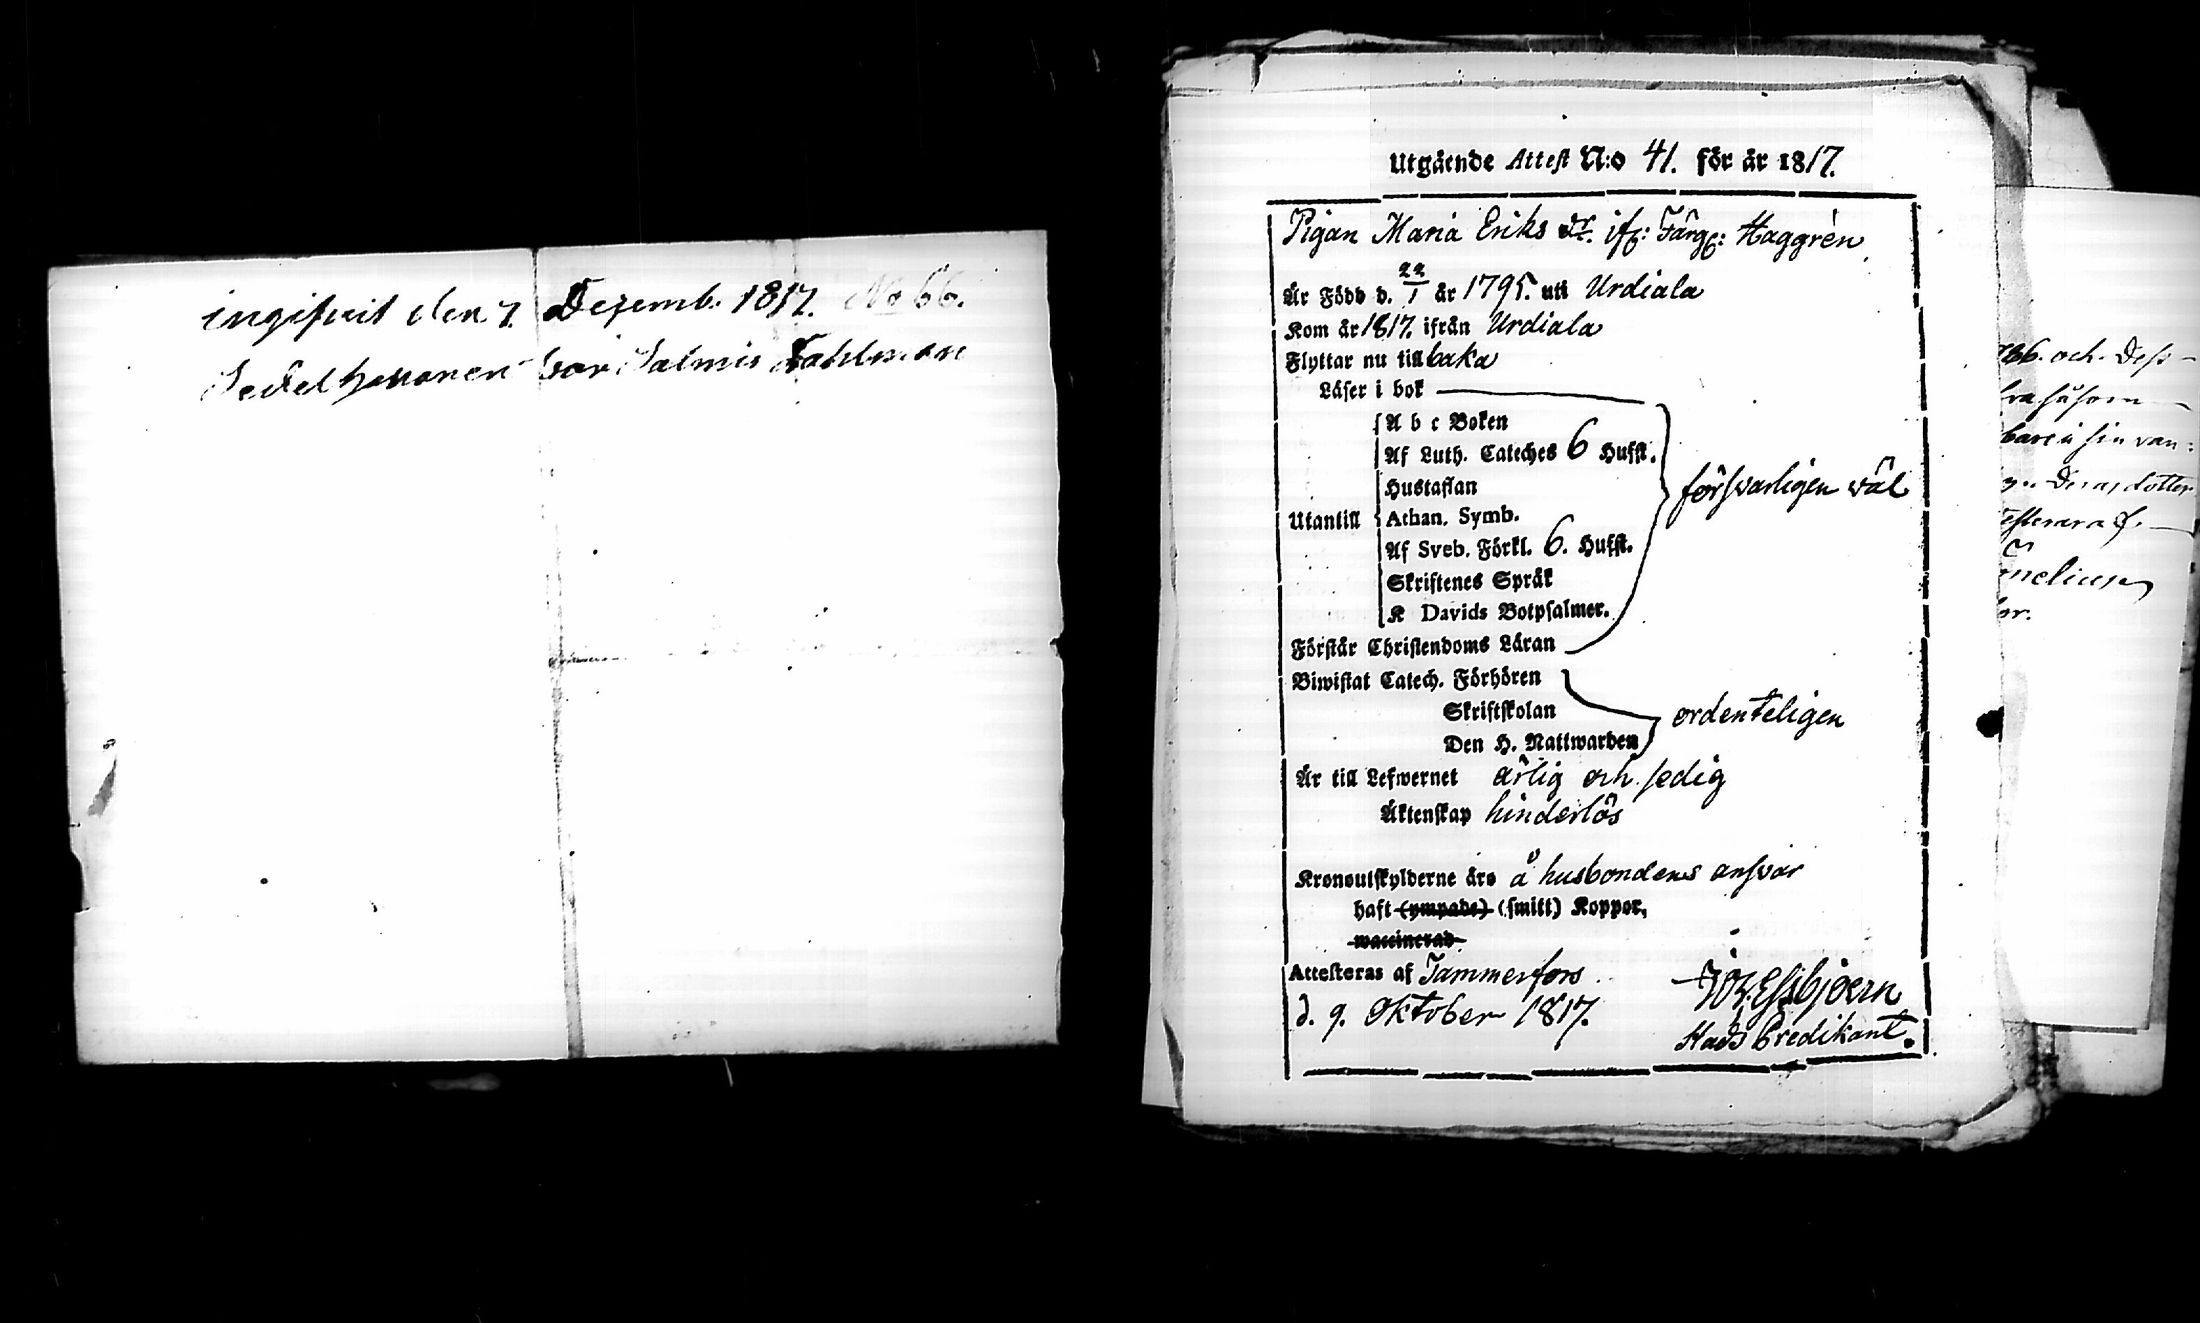 ingifvit den 7. Dezemb. 1817. No 66.
Tahlman
Utgående Attest N:o 41. för år 1817.
Pigan Maria Eriks dr. ifr: Färg: Haggrén
Är Född d. 22/1 år 1795. uti Urdiala
Kom år 1817. ifrån Urdiala
Flyttar nu tillbaka
Läser i bok
A b c Boken
Af Luth. Cateches 6 Hufst.
Hustaflan
försvarligen väl
Utantill Athan. Symb.
Af Sveb. Förkl. 6. Hufst.
Skriftenes Språk
K Davids Botpsalmer.
Förstår Christendoms Läran
Biwistat Catech. Förhören
Skriftskolan
ordenteligen
Den H. Nattwarden
Är till Lefwernet ärlig och sedig
Äktenskap hinderlös
Kronoutskylderne äro å husbondens ansvar
haft (ympade) (smitt) Koppor,
waccinerad
Attesteras af Tammerfors
d. 9. Oktober 1817.
Essbjoern
Predikant.
och Dess
såsom
sin van:
Deras dotter